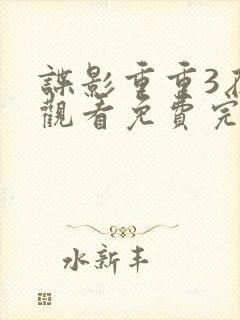 諜影重重3
觀看免費完
水新丰